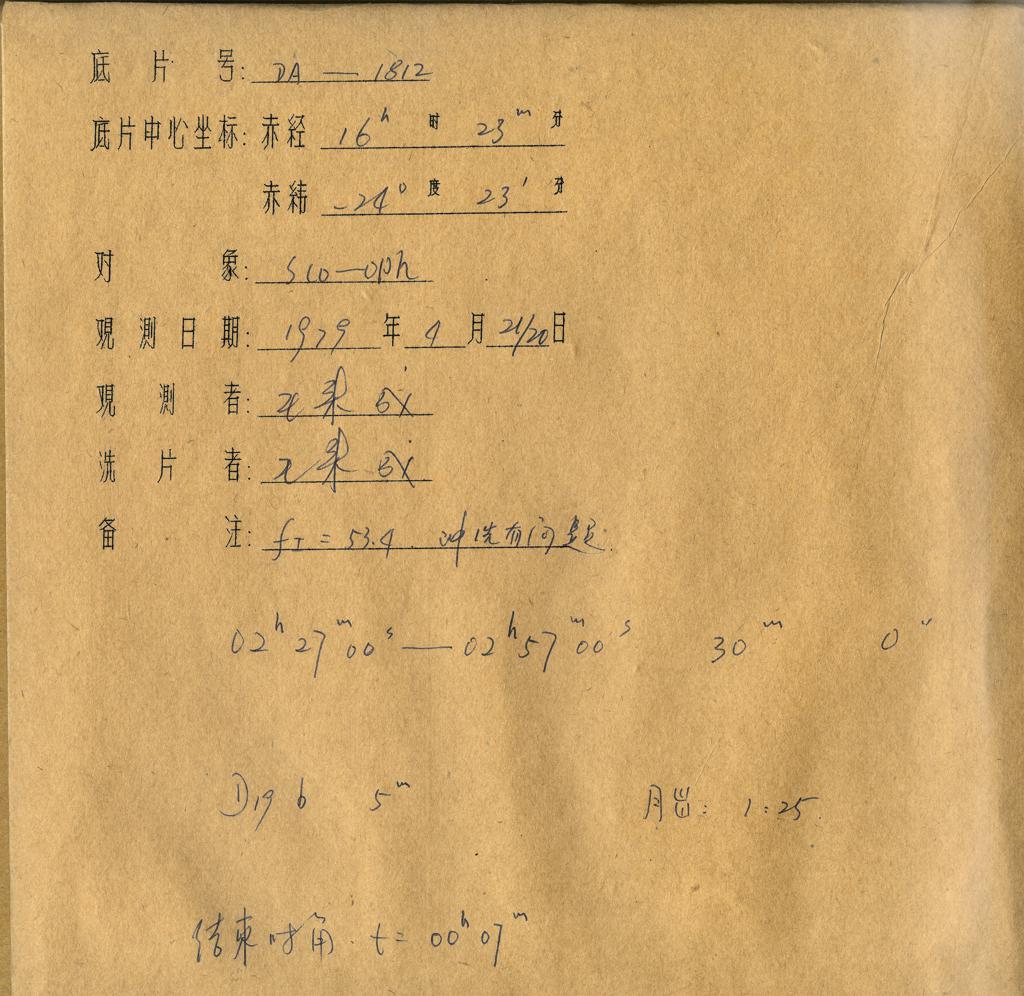 底片号: DA — 1812
底片中心坐标: 赤经 16h 时 23m 分
赤纬 -24° 度 23′ 分
对象: Sco—Oph
观测日期: 1979 年 4 月 21/20 日
观测者:
洗片者:
备注: fI = 53.4 冲洗有问题.
02h 27m 00s — 02h 57m 00s 30m 0"
D19 b 5m 月出: 1:25.
结束时角. t = 00h 07m